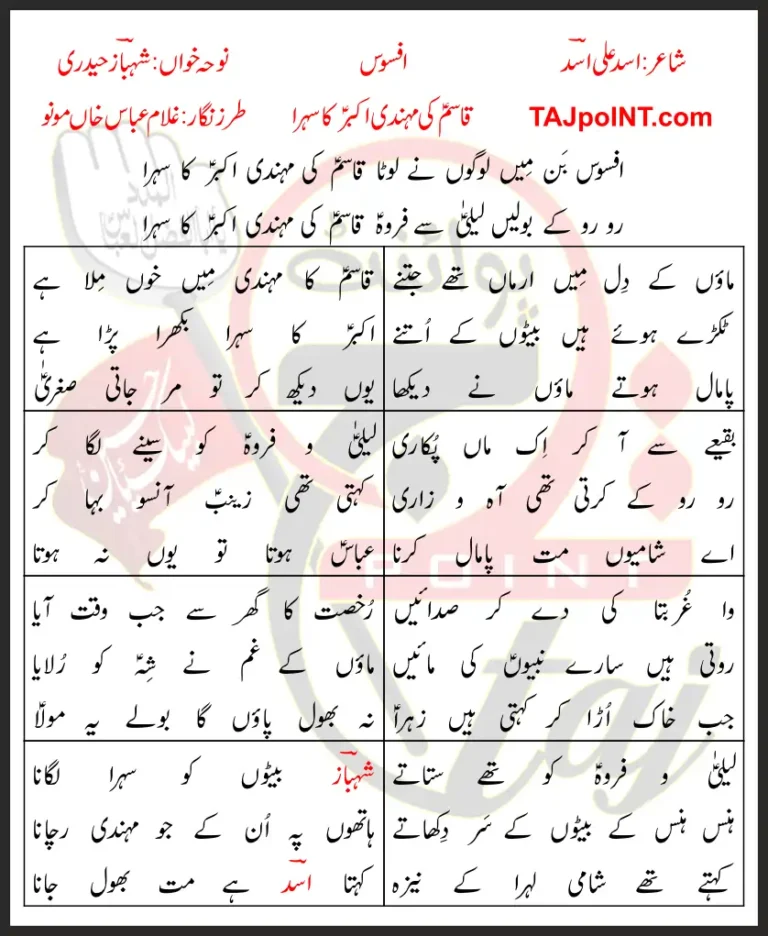 شاعر: اسد علی اسدؔ افسوس نوحہ خواں: شہبازؔ حیدری
TAJpoINT.com قاسمؑ کی مہندی اکبرؑ کا سہرا طرز نگار: غلام عباس خاں مونو
افسوس بَن مِیں لوگوں نے لوٹا قاسمؑ کی مہندی اکبرؑ کا سہرا
رو رو کے بولیں لیلیٰؑ سے فروہؑ قاسمؑ کی مہندی اکبرؑ کا سہرا
ماؤں کے دِل مِیں ارماں تھے جتنے
ٹکڑے ہوئے ہیں بیٹوں کے اُتنے
پامال ہوتے ماؤں نے دیکھا
قاسمؑ کا مہندی مِیں خوں مِلا ہے
اکبرؑ کا سہرا بکھرا پڑا ہے
یوں دیکھ کر تو مر جاتی صغریٰؑ
بقیعے سے آ کر اِک ماں پُکاری
رو رو کے کرتی تھی آہ و زاری
اے شامیوں مت پامال کرنا
لیلیٰؑ و فروہؑ کو سینے لگا کر
کہتی تھی زینبؑ آنسو بہا کر
عباسؑ ہوتا تو یوں نہ ہوتا
وا غُربتا کی دے کر صدائیں
روتی ہیں سارے نبیوںؑ کی مائیں
جب خاک اُڑا کر کہتی ہیں زہراؑ
رُخصت کا گھر سے جب وقت آیا
ماؤں کے غم نے شِہؑ کو رُلایا
نہ بھول پاؤں گا بولے یہ مولاؑ
لیلیٰؑ و فروہؑ کو تھے ستاتے
ہنس ہنس کے بیٹوں کے سَر دِکھاتے
کہتے تھے شامی لہرا کے نیزہ
شہبازؔ بیٹوں کو سہرا لگانا
ہاتھوں پہ اُن کے جو مہندی رچانا
کہتا اسدؔ ہے مت بھول جانا
پوائنٹ
POINT
taj